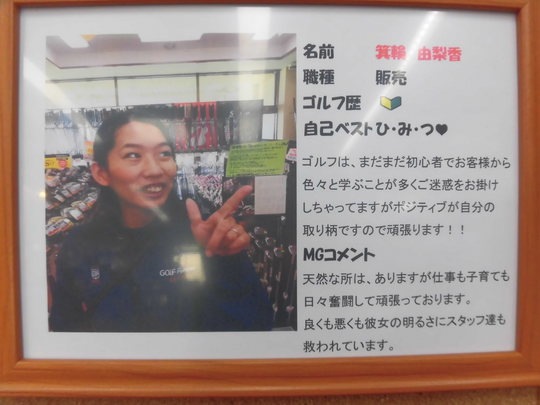 名前 箕輪 由梨香
職種 販売
ゴルフ歴
自己ベスト ひ・み・つ♥
ゴルフは、まだまだ初心者でお客様から
色々と学ぶことが多くご迷惑をお掛け
しちゃってますがポジティブが自分の
取り柄ですので頑張ります！！
MGコメント
天然な所は、ありますが仕事も子育ても
日々奮闘して頑張っております。
良くも悪くも彼女の明るさにスタッフ達も
救われています。
GOLF